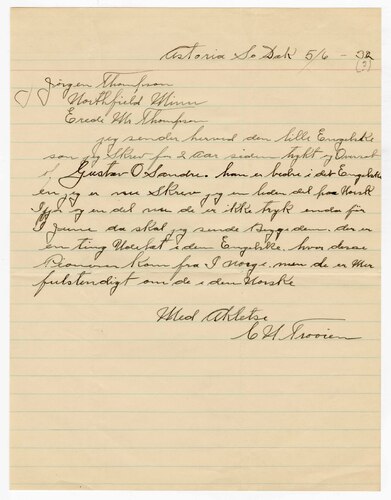 Astoria So Dak 5/6 - 32
(3)
Jörgen Thompson
Northfield Minn
Erede Mr Thompson
jeg sender herved den lille Engelske
som jeg Skrev for 2 aar siden trykt og Oversat
i Gustav O Sandro. han er bedre i det Engelske
en jeg er nu Skrev jeg en liden del paa Norsk
og en del nu de er ikke tryk enda för
I June da skal jeg sende Bygden. der er
en ting Udelat i den Engelske. hvor disse
Pionerer kom fra I Norge. men de er mer
fulstendigt om de i den Norske
Med Aktelse
C H Trooien